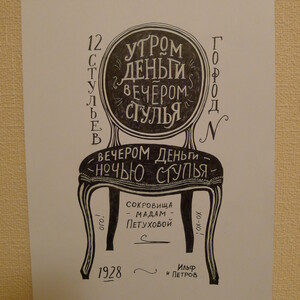 12 СТУЛЬЕВ
ГОРОД N
УТРОМ
ДЕНЬГИ
ВЕЧЕРОМ
СТУЛЬЯ
ВЕЧЕРОМ ДЕНЬГИ
НОЧЬЮ СТУЛЬЯ
ОГО!
СОКРОВИЩА
МАДАМ
ПЕТУХОВОЙ
ХО-ХО!
1928
ИЛЬФ
и ПЕТРОВ